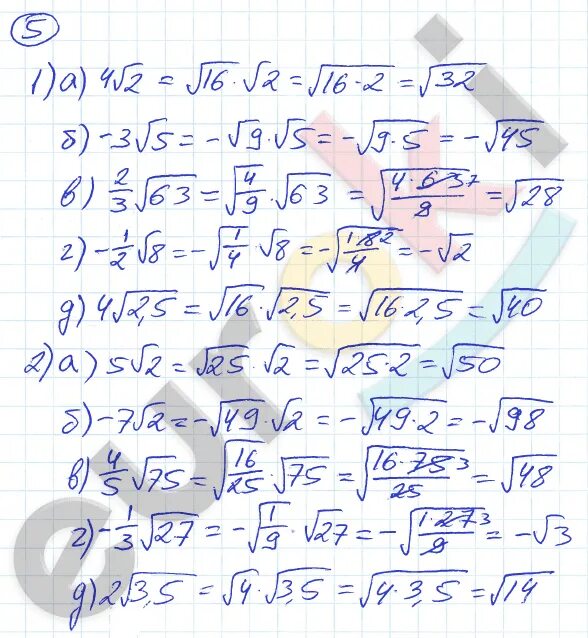 5
1) а) 4√2 = √16 · √2 = √(16·2) = √32
б) -3√5 = -√9 · √5 = -√(9·5) = -√45
в) 2/3 √63 = √(4/9) · √63 = √(4·63 7/9) = √28
г) -1/2 √8 = -√(1/4) · √8 = -√(1·8 2/4) = -√2
д) 4√2,5 = √16 · √2,5 = √(16·2,5) = √40
2) а) 5√2 = √25 · √2 = √(25·2) = √50
б) -7√2 = -√49 · √2 = -√(49·2) = -√98
в) 4/5 √75 = √(16/25) · √75 = √(16·75 3/25) = √48
г) -1/3 √27 = -√(1/9) · √27 = -√(1·27 3/9) = -√3
д) 2√3,5 = √4 · √3,5 = √(4·3,5) = √14
euroki